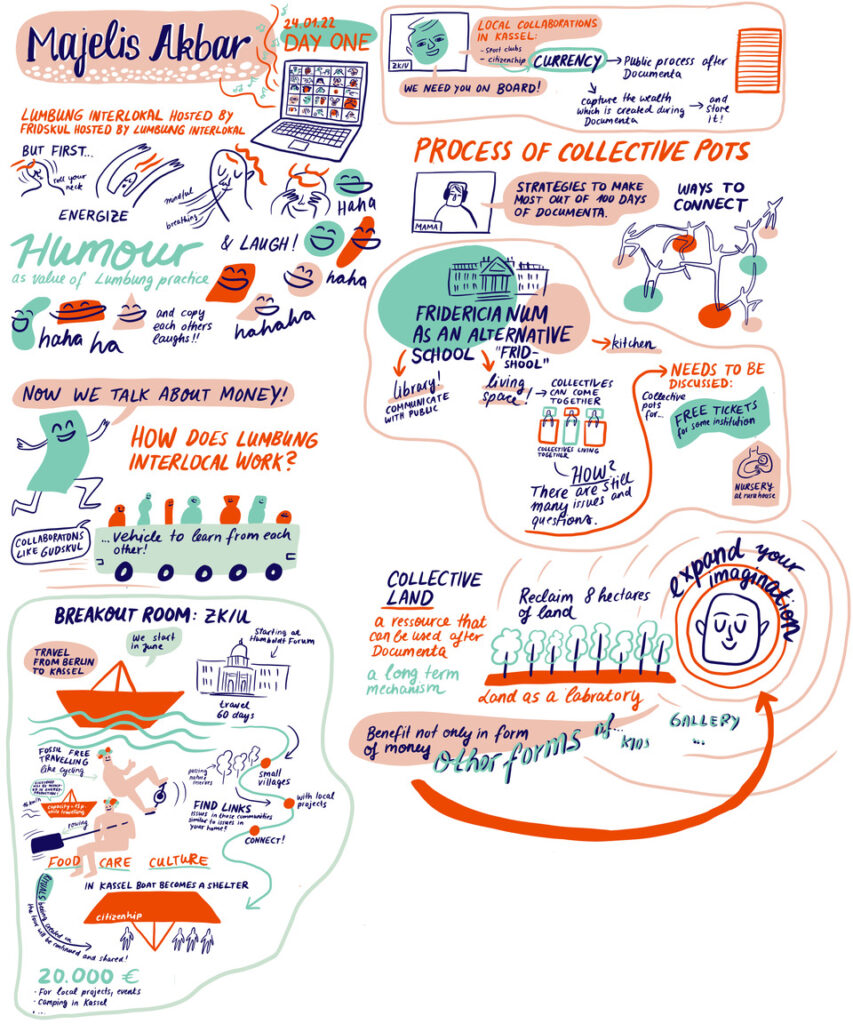 Majelis Akbar
24.01.22
DAY ONE
LUMBUNG INTERLOKAL HOSTED BY
FRIDSKUL HOSTED BY LUMBUNG INTERLOKAL
BUT FIRST...
roll your
neck
mindful
breathing
ENERGIZE
Haha
Humour
& LAUGH!
as value of Lumbung practice
haha
haha
ha
and copy
each others
laughs!!
hahaha
NOW WE TALK ABOUT MONEY!
HOW DOES LUMBUNG
INTERLOCAL WORK?
COLLABORATONS
LIKE GUDSKUL
...vehicle to learn from each
other!
BREAKOUT ROOM: ZK/U
TRAVEL
FROM BERLIN
TO KASSEL
We start
in june
Starting at
Humboldt Forum
travel
60 days
FOSSIL FREE
TRAVELLING
like cycling
capacity = 15 p.
while travelling
rowing
small
villages
with local
projects
FIND LINKS
issues in those communities
similar to issues in
your home?
CONNECT!
FOOD CARE CULTURE
IN KASSEL BOAT BECOMES A SHELTER
citizenship
RITUALS
being created on
the tour will be continued and shared!
20.000 €
- For local projects, events
- Camping in Kassel
- ...
ZK/U
LOCAL COLLABORATIONS
IN KASSEL:
- Sport clubs
- citizenship
WE NEED YOU ON BOARD!
CURRENCY
Public process after
Documenta
capture the wealth
which is created during
Documenta
and
store
it!
PROCESS OF COLLECTIVE POTS
MAMA
STRATEGIES TO MAKE
MOST OUT OF 100 DAYS
OF DOCUMENTA.
WAYS TO
CONNECT
FRIDERICIANUM
AS AN ALTERNATIVE
SCHOOL "FRID-
SHOOL"
kitchen
library!
COMMUNICATE
WITH PUBLIC
living
space!
COLLECTIVES
CAN COME
TOGETHER
COLLECTIVES LIVING
TOGETHER
HOW?
There are still
many issues and
questions.
NEEDS TO BE
DISCUSSED:
Collective
pots
for...
FREE TICKETS
for some institution
NURSERY
at rurahouse
COLLECTIVE
LAND
a ressource that
can be used after
Documenta
a long term
mechanism
Reclaim 8 hectares
of land
Land as a labratory
expand your
imagination
Benefit not only in form
of money
other forms of...
KIDS
GALLERY
...